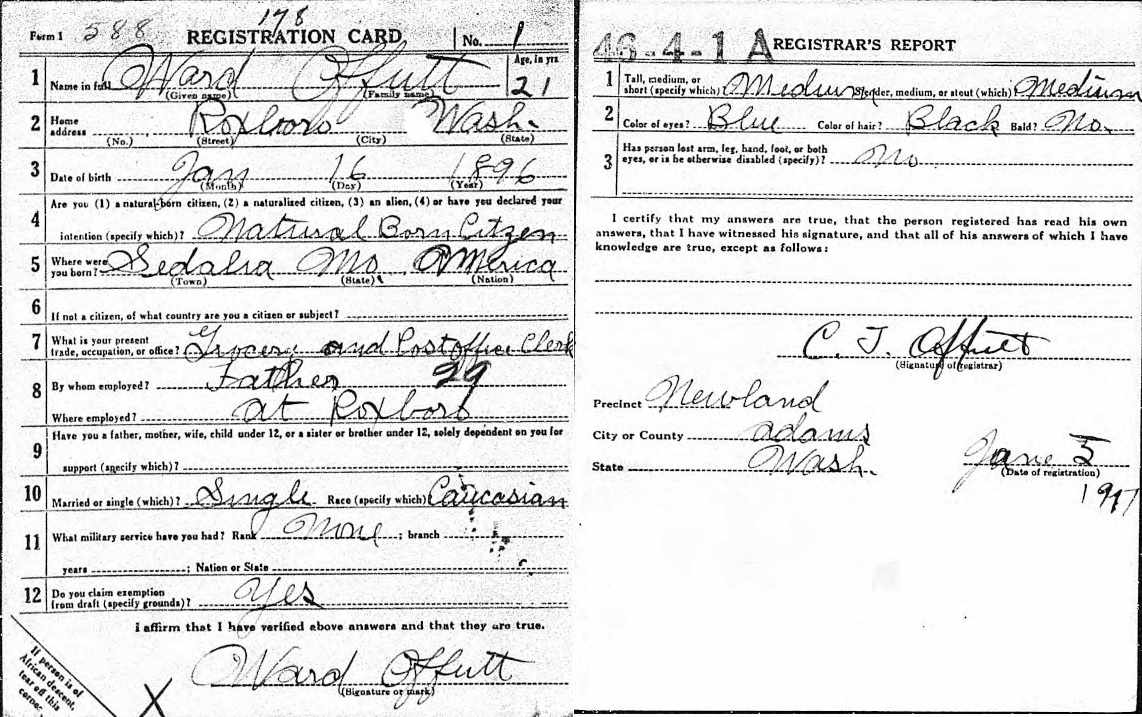 178
Form 1 588 REGISTRATION CARD No. 1
1 Name in full Ward Offutt Age, in yrs 21
(Given name) (Family name)
2 Home address Roxboro Wash.
(No.) (Street) (City) (State)
3 Date of birth Jan 16 1896
(Month) (Day) (Year)
4 Are you (1) a natural-born citizen, (2) a naturalized citizen, (3) an alien, (4) or have you declared your
intention (specify which)? Natural Born Citzen
5 Where were you born? Sedalia Mo America
(Town) (State) (Nation)
6 If not a citizen, of what country are you a citizen or subject?
7 What is your present trade, occupation, or office? Grocery and Postoffice Clerk
8 By whom employed? Father 29
Where employed? at Roxboro
9 Have you a father, mother, wife, child under 12, or a sister or brother under 12, solely dependent on you for
support (specify which)?
10 Married or single (which)? Single Race (specify which) Caucasian
11 What military service have you had? Rank None ; branch
years ; Nation or State
12 Do you claim exemption from draft (specify grounds)? Yes
I affirm that I have verified above answers and that they are true.
Ward Offutt
(Signature or mark)
If person is of
African descent,
tear off this
corner.
X
46-4-1 A REGISTRAR'S REPORT
1 Tall, medium, or short (specify which) Medium Slender, medium, or stout (which) Medium
2 Color of eyes? Blue Color of hair? Black Bald? No.
3 Has person lost arm, leg, hand, foot, or both eyes, or is he otherwise disabled (specify)? No
I certify that my answers are true, that the person registered has read his own
answers, that I have witnessed his signature, and that all of his answers of which I have
knowledge are true, except as follows:
C. T. Offutt
(Signature of registrar)
Precinct Newland
City or County Adams
State Wash. June 5
(Date of registration)
1917